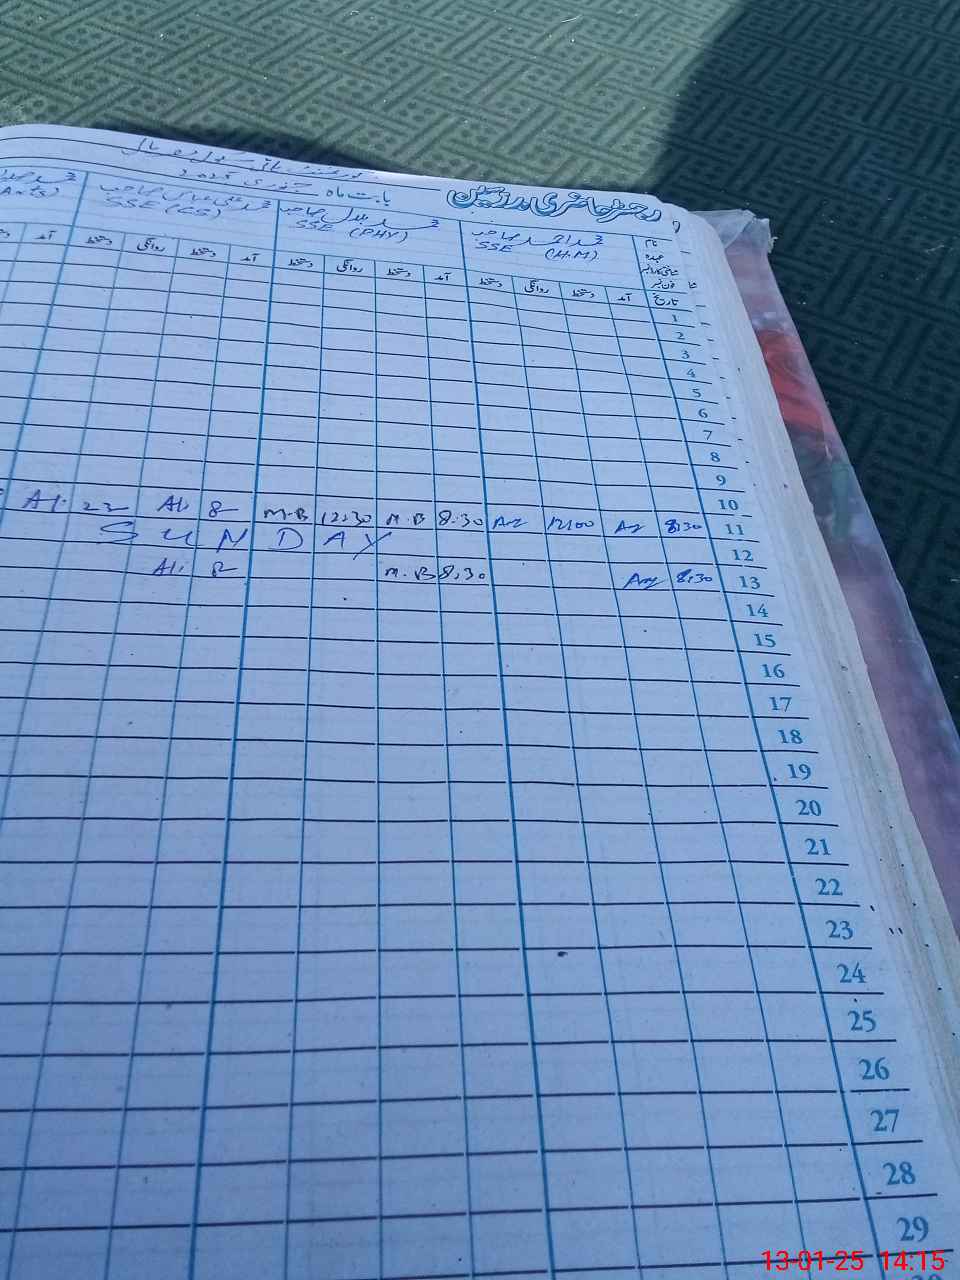 رجسٹر حاضری مدرسین
بابت ماہ جنوری 2025
نام
عہدہ
شناختی کارڈ نمبر
فون نمبر
تاریخ
محمد احمد صاحب
SSE (H.M)
محمد بلال صاحب
SSE (PHY)
محمد علی عباس صاحب
SSE (CS)
محمد
(Arts)
آمد دستخط روانگی دستخط آمد دستخط روانگی دستخط آمد دستخط روانگی دستخط آمد
1
2
3
4
5
6
7
8
9
10
Al. 22 Ali 8 M.B 12:30 M.B 8:30 12:00 8:30 11
SUNDAY 12
Ali 8 M.B 8:30 8:30 13
14
15
16
17
18
19
20
21
22
23
24
25
26
27
28
29
13-01-25 14:15